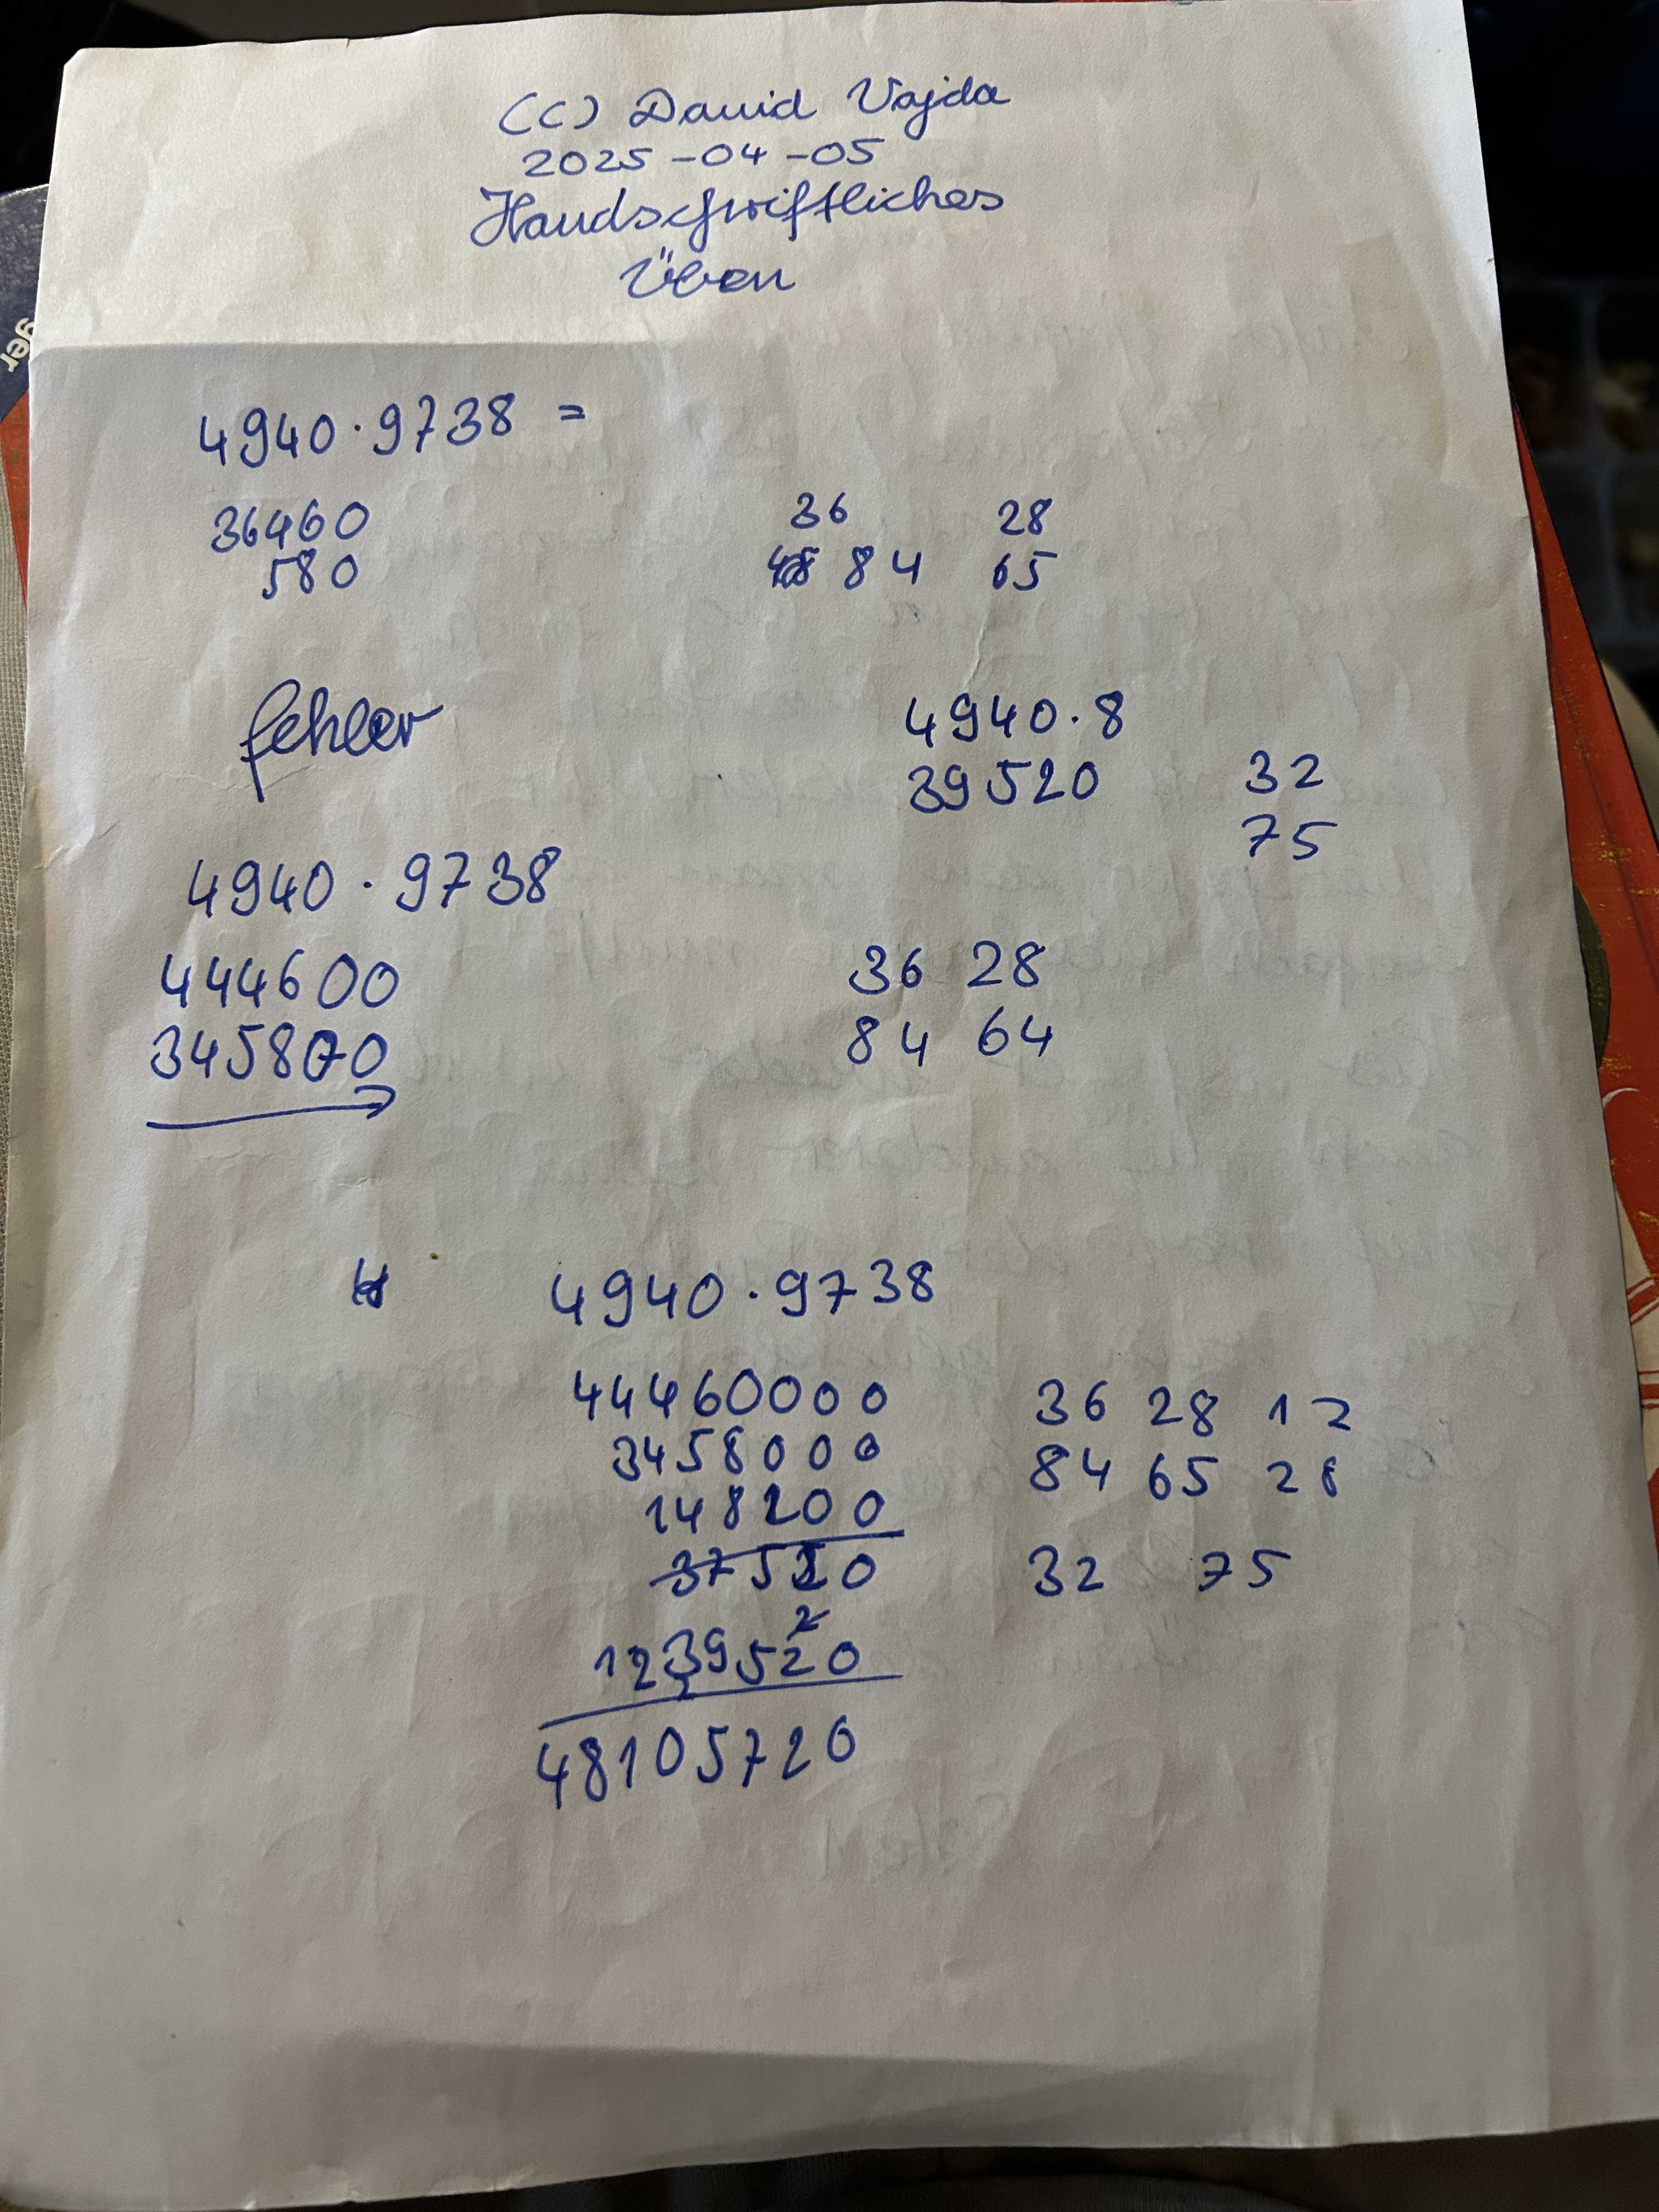 (C) David Vajda
2025-04-05
Handschriftliches
Üben
ger
4940 · 9738 =
36460
580
36 28
84 65
fehler
4940 · 8
39520 32
75
4940 · 9738
444600
345800
36 28
84 64
4940 · 9738
44460000 36 28 12
3458000 84 65 28
148200
37520 32 75
2
1239520
48105720